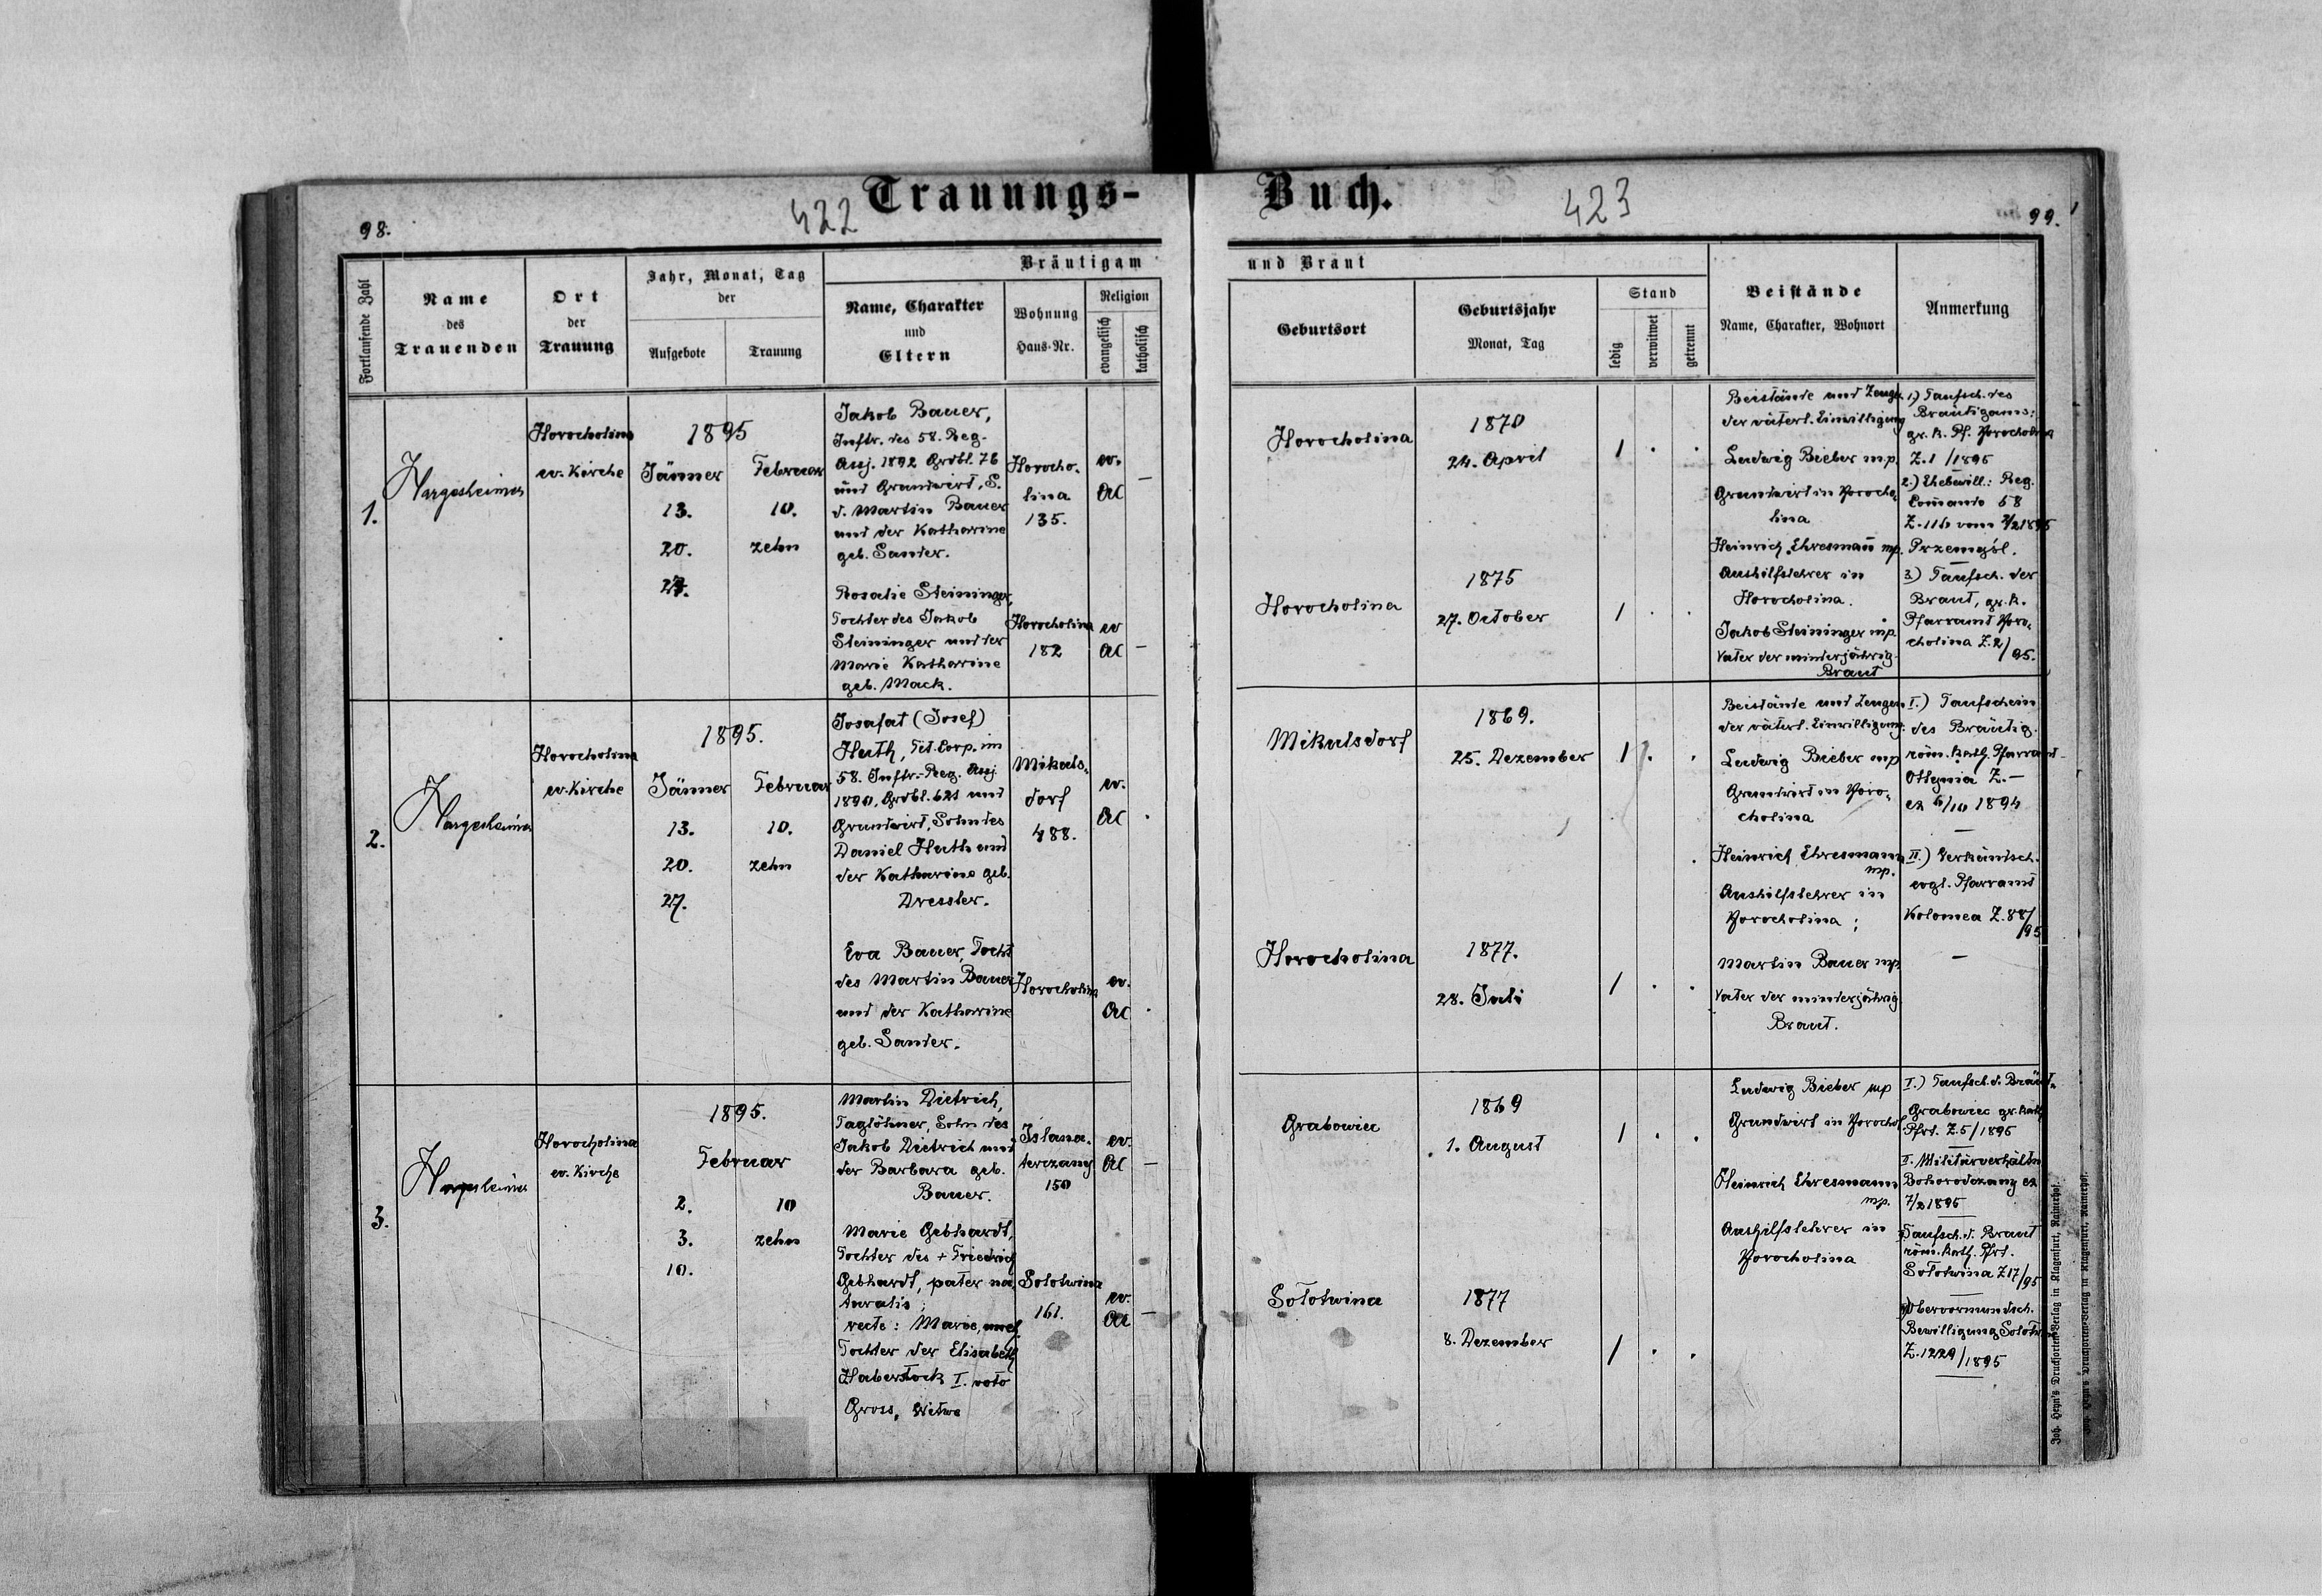 Trauungs-
Buch.
98.
422
423
99.
Fortlaufende Zahl
Name
des
Trauenden
Ort
der
Trauung
Jahr, Monat, Tag
der
Aufgebote
Trauung
Bräutigam
und Braut
Name, Charakter
und
Eltern
Wohnung
Haus-Nr.
Religion
evangelisch
katholisch
Geburtsort
Geburtsjahr
Monat, Tag
Stand
ledig
verwitwet
getrennt
Beistände
Name, Charakter, Wohnort
Anmerkung
1.
Hargesheimer
Horocholina
ev. Kirche
1895
Jänner
Februar
13.
10.
20.
zehn
27.
Jakob Bauer,
Inftr. des 58. Reg.
Assj. 1892 Grdbl. 76
und Grundwirt, S.
d. Martin Bauer
und der Katharine
geb. Sander.
Horocho-
lina
135.
ev.
AC
—
Rosalie Steininger,
Tochter des Jakob
Steininger und der
Marie Katharine
geb. Mack.
Horocholina
182
ev
AC
—
Horocholina
1870
24. April
1 . .
Horocholina
1875
27. October
1 . .
Beistände und Zeuge
der väterl. Einwilligung
Ludwig Bieber mp.
Grundwirt in Horocho-
lina
Heinrich Ehresmann mp.
Aushilfslehrer in
Horocholina.
Jakob Steininger mp.
Vater der minderjährig.
Braut
1.) Taufsch. des
Bräutigams:
gr. k. Pf. Horocholina
Z. 1/1895
2.) Ehebewill.: Reg.
Comando 58
Z. 116 vom 7/2 1895
Przemyśl.
—
3.) Taufsch. der
Braut, gr. k.
Pfarramt Horo-
cholina Z. 2/
95.
2.
Hargesheimer
Horocholina
ev. Kirche
1895.
Jänner
Februar
13.
10.
20.
zehn
27.
Josafat (Josef)
Huth, Tit. Corp. im
58. Inftr.-Reg. Assj.
1890, Grdbl. 621 und
Grundwirt, Sohn des
Daniel Huth und
der Katharine geb.
Dressler.
Mikuls-
dorf
488.
ev.
AC
.
Eva Bauer, Tocht.
des Martin Bauer
und der Katharine
geb. Sander.
Horocholina
ev.
AC
.
Mikulsdorf
1869.
25. Dezember
1 . .
Horocholina
1877.
28. Juli
1 . .
Beistände und Zeugen
der väterl. Einwilligung.
Ludwig Bieber mp
Grundwirt in Horo-
cholina
Heinrich Ehresmann
mp.
Aushilfslehrer in
Horocholina;
Martin Bauer mp
Vater der minderjährig.
Braut.
I.) Taufschein
des Bräutig.
röm. kath. Pfarramt
Ottynia Z. —
ex 6/10 1894
—
II.) Verkündsch.
evgl. Pfarramt
Kolomea Z. 88/
95
—
3.
Hargesheimer
Horocholina
ev. Kirche
1895.
Februar
2.
10
3.
zehn
10.
Martin Dietrich,
Taglöhner, Sohn des
Jakob Dietrich und
der Barbara geb.
Bauer.
150
ev.
AC
—
Marie Gebhardt,
Tochter des + Friedrich
Gebhardt, pater na-
turalis;
recte: Marie, unehl.
Tochter der Elisabeth
Haberstock I. voto
Gross, Witwe
Solotwina
161.
ev.
AC
—
Grabowiec
1869
1. August
1 . .
Sołotwina
1877
8. Dezember
1 . .
Ludwig Bieber mp
Grundwirt in Horochol.
Heinrich Ehresmann
mp.
Aushilfslehrer in
Horocholina
I.) Taufsch. d. Bräut.
Grabowiec gr. kath.
Pfrt. Z. 5/1895
—
II. Militärverhältn.
Bohorodczany ex
7/2 1895
—
Taufsch. d. Braut
röm. kath. Pfrt.
Sołotwina Z 17/95
—
Obervormundsch.
Bewilligung Sołotw.
Z. 1229/1895
Joh. Heyn's Drucksorten-Verlag in Klagenfurt, Rainerhof.
Joh. Heyn's Drucksorten-Verlag in Klagenfurt, Rainerhof.